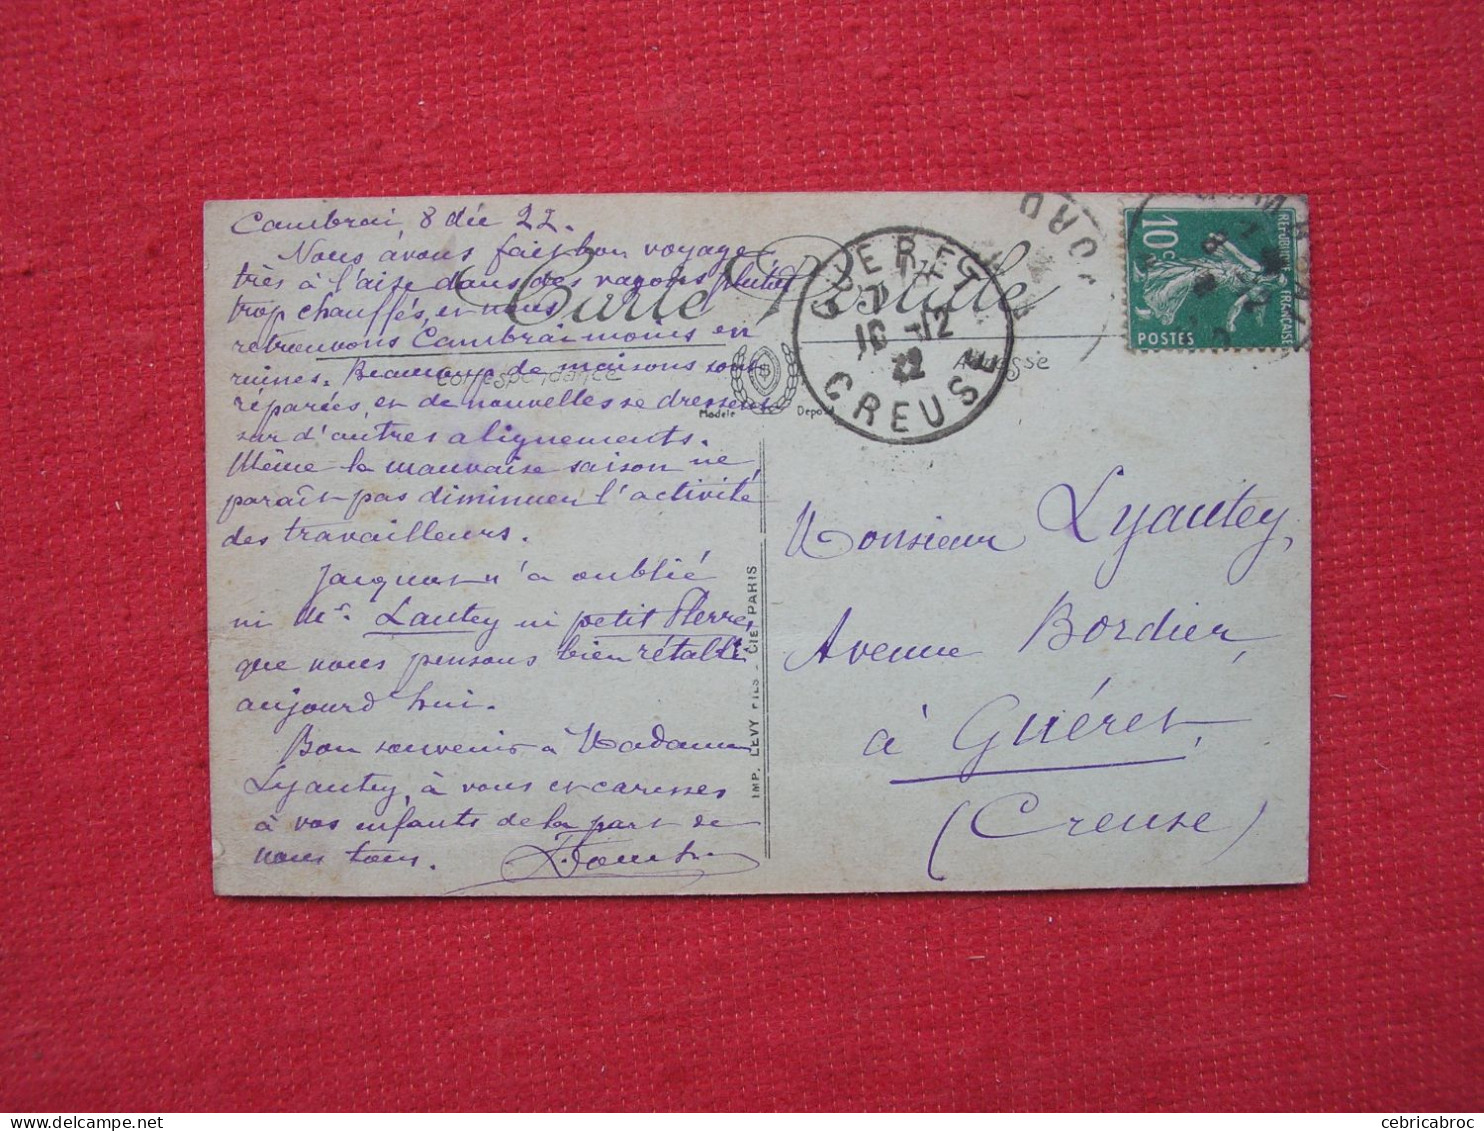 Cambrai, 8 déc 22.
Nous avons fait bon voyage,
très à l'aise dans des vagons plutôt
trop chauffés, et nous
retrouvons Cambrai moins en
ruines. Beaucoup de maisons sont
réparées, et de nouvelles se dressent
sur d'autres alignements.
Même la mauvaise saison ne
paraît pas diminuer l'activité
des travailleurs.
Jacquot n'a oublié
ni Mr. Lautey ni petit Pierre,
que nous pensons bien rétabli
aujourd'hui.
Bon souvenir à Madame
Lyautey, à vous et caresses
à vos enfants de la part de
nous tous.
Carte Postale
Correspondance
Adresse
Modèle Déposé
IMP. LEVY FILS - CIE. PARIS
GUERET
16 -12
22
CREUSE
NORD
10c
REPUBLIQUE FRANÇAISE
POSTES
Monsieur Lyautey,
Avenue Bordier,
à Guéret,
(Creuse)
cebricabroc